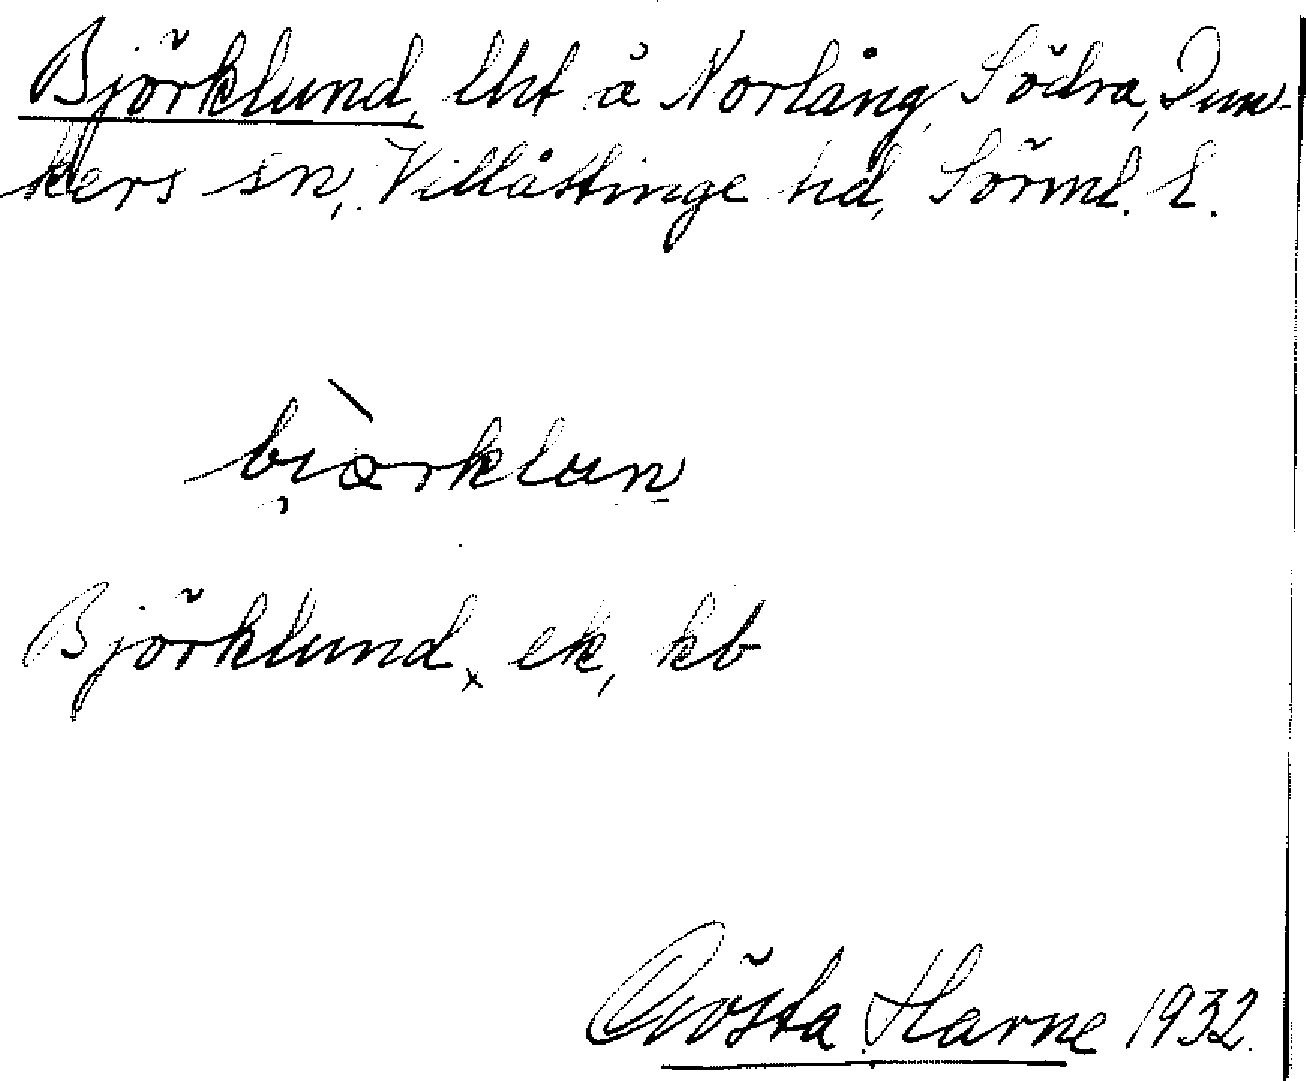 Björklund, lht å Norlång, Södra, Dun-
kers sn, Villåttinge hd, Sörml. l.
bi̯òrklun
Björklund, ek, kb
Gösta Harne 1932.